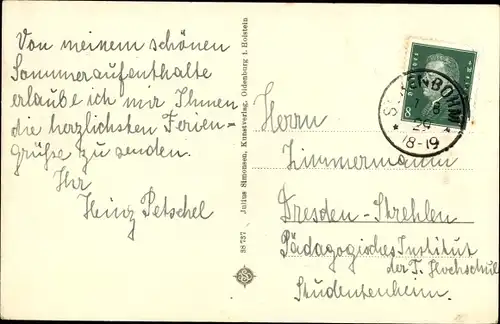 Von meinem schönen
Sommeraufenthalte
erlaube ich mir Ihnen
die herzlichsten Ferien-
grüße zu senden.
Ihr
Heinz Petschel
88 737 Julius Simonsen, Kunstverlag, Oldenburg i. Holstein
8
29
* 18-19 *
Herrn
Zimmermann
Dresden-Strehlen
Pädagogisches Institut
der T. Hochschule
Studentenheim.